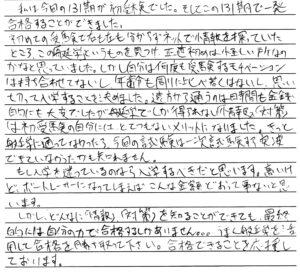 私は今回の131期が初受験でした。そしてこの131期で一発
合格することができました。
初めての受験で右も左も分からずネットで情報を探していた
ところ、この 学院というものを見つけ、正直初めは怪しい所なの
かなと思っていました。しかし自分は何度も受験するモチベーション
は持ち合わせてないし、年齢も周りに比べ若くはないし、思い
切って入学することを決めました。遠方から通うのは時間も金銭
的にも大変でしたが 学院でしか得られない「情報」「対策」
は初受験の自分にはとてつもないメリットになりました。きっと
学院に通ってなかったら、今回の試験は一次試験すら突破
できていなかったかも知れません。
もし入学を迷っているのなら入学するべきだと思います。高いけ
ど、ボートレーサーになってしまえばこんな金額どおって事ないと思
います。
しかし、どんなに「情報」「対策」を知ることができても、最終
的には自分の力で合格するしかありません。 学院を活
用して合格を勝ち取って下さい。合格できることを応援し
ております。